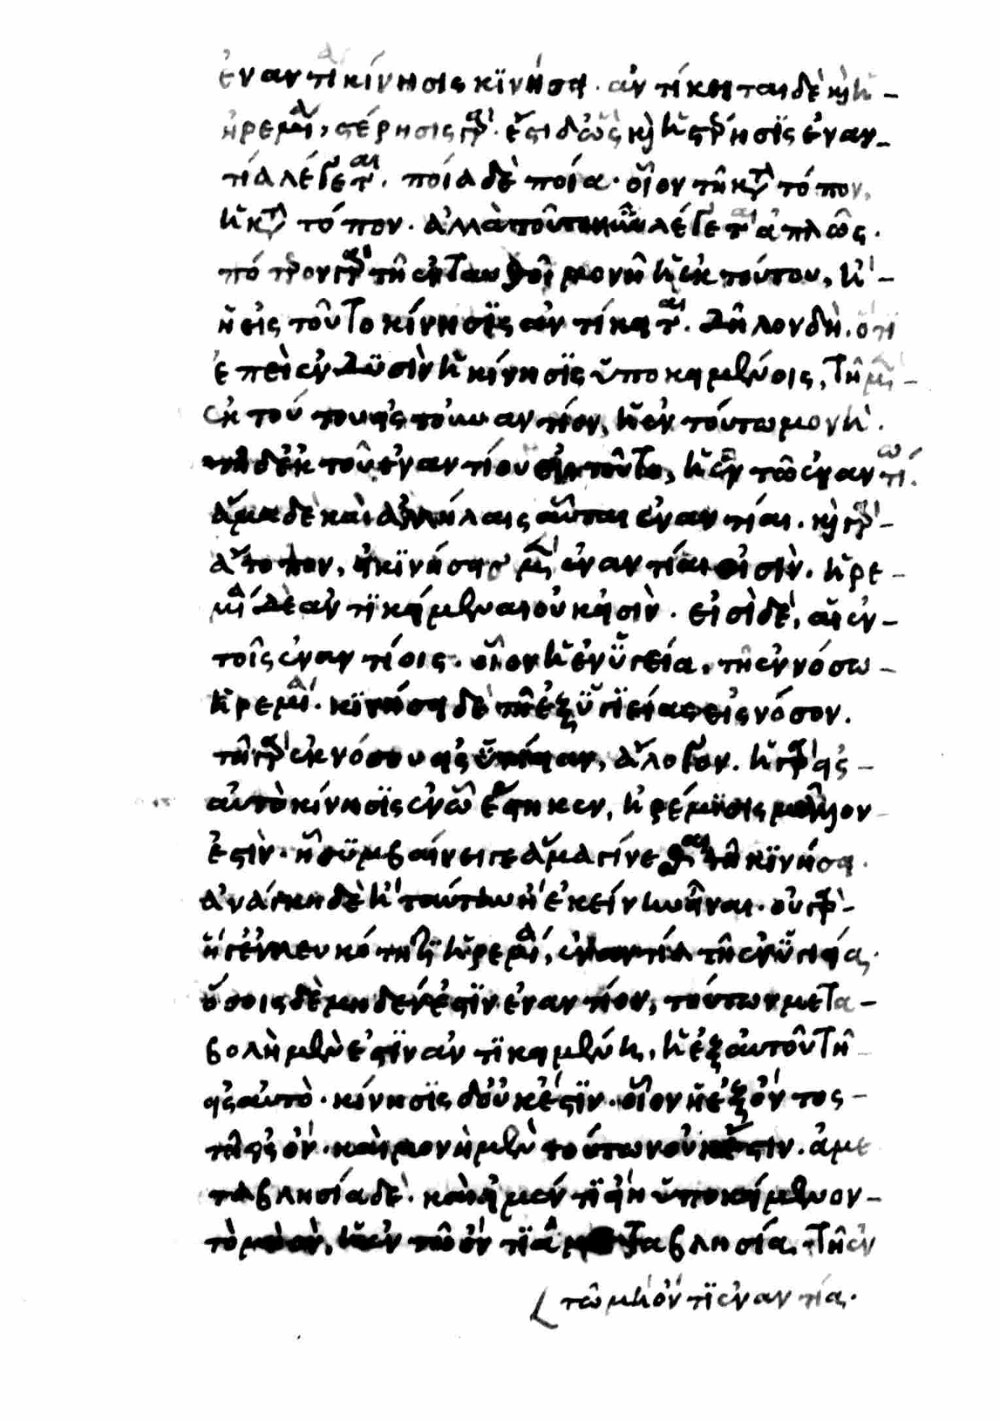 ἐναντία κίνησις κινήσει. ἀντίκειται δὲ καὶ ἡ
ἠρεμία, στέρησις γάρ. ἔστι δ' ὡς καὶ ἡ στέρησις ἐναν
τία λέγεται. ποία δὲ ποία. οἷον τῇ κατὰ τόπον,
ἡ κατὰ τόπον. ἀλλὰ τοῦτο νῦν λέγεται ἁπλῶς.
πότερον γὰρ τῇ ἐνταυθοῖ μονῇ ἡ ἐκ τούτου, ἢ
ἡ εἰς τοῦτο κίνησις ἀντίκειται. δῆλον δὴ ὅτι
ἐπεὶ ἐν δυσὶν ἡ κίνησις ὑποκειμένοις, τῇ μὲν
ἐκ τούτου εἰς τὸ ἐναντίον, ἡ ἐν τούτω μονή.
τῇ δ' ἐκ τοῦ ἐναντίου εἰς τοῦτο, ἡ ἐν τῶ ἐναντίω.
ἅμα δὲ καὶ ἀλλήλαις αὗται ἐναντίαι. καὶ γὰρ
ἄτοπον, εἰ κινήσεις μὲν ἐναντίαι εἰσὶν. ἠρε
μίαι δὲ ἀντικείμεναι οὐκ εἰσὶν. εἰσὶ δὲ, αἱ ἐν
τοῖς ἐναντίοις. οἷον ἡ ἐν ὑγιεία, τῇ ἐν νόσω
ἠρεμία. κινήσει δὲ τῇ ἐξ ὑγιείας εἰς νόσον.
τῇ γὰρ ἐκ νόσου εἰς ὑγίειαν, ἄλογον. ἡ γὰρ εἰς
αὐτὸ κίνησις ἐν ὧ ἕστηκεν, ἠρέμησις μᾶλλον
ἐστὶν. ἧ συμβαίνει γε ἅμα γίνεσθαι τῇ κινήσει.
ἀνάγκη δὲ ἢ ταύτην ἢ ἐκείνην εἶναι. οὐ γὰρ
ἥ γ' ἐν λευκότητι ἠρεμία, ἐναντία τῇ ἐν ὑγιεία.
ὅσοις δὲ μὴ δέν ἐστιν ἐναντίον, τούτων μετα
βολὴ μὲν ἐστιν ἀντικειμένη, ἡ ἐξ αὐτοῦ τῇ
εἰς αὐτό. κίνησις δ' οὐκ ἔστιν. οἷον ἡ ἐξ ὄντος
τῇ εἰς ὄν. καὶ μονὴ μὲν τούτων οὐκ ἔστιν. ἀμε
ταβλησία δέ. καὶ εἰ μέν τι εἴη ὑποκείμενον
τὸ μὴ ὄν, ἡ ἐν τῶ ὄντι ἀμεταβλησία, τῇ ἐν
τῶ μὴ ὄντι ἐναντία.